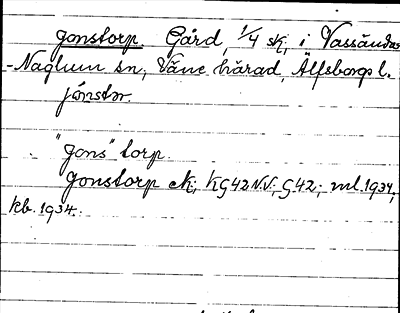 Jonstorp. Gård, 1/4 sk, i Vassända
-Naglum sn, Väne härad, Älfsborgs l.
jónstor.
"Jons" torp.
Jonstorp ek; KG42N.V; G42; ml. 1934,
kb. 1934.